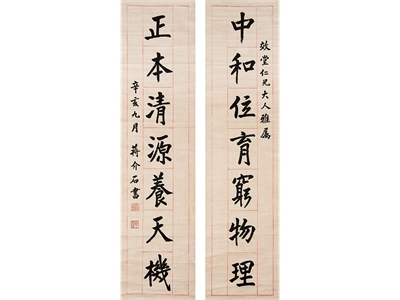 效堂仁兄大人雅属
中和位育窮物理
正本清源養天機
辛亥九月 蒋介石書